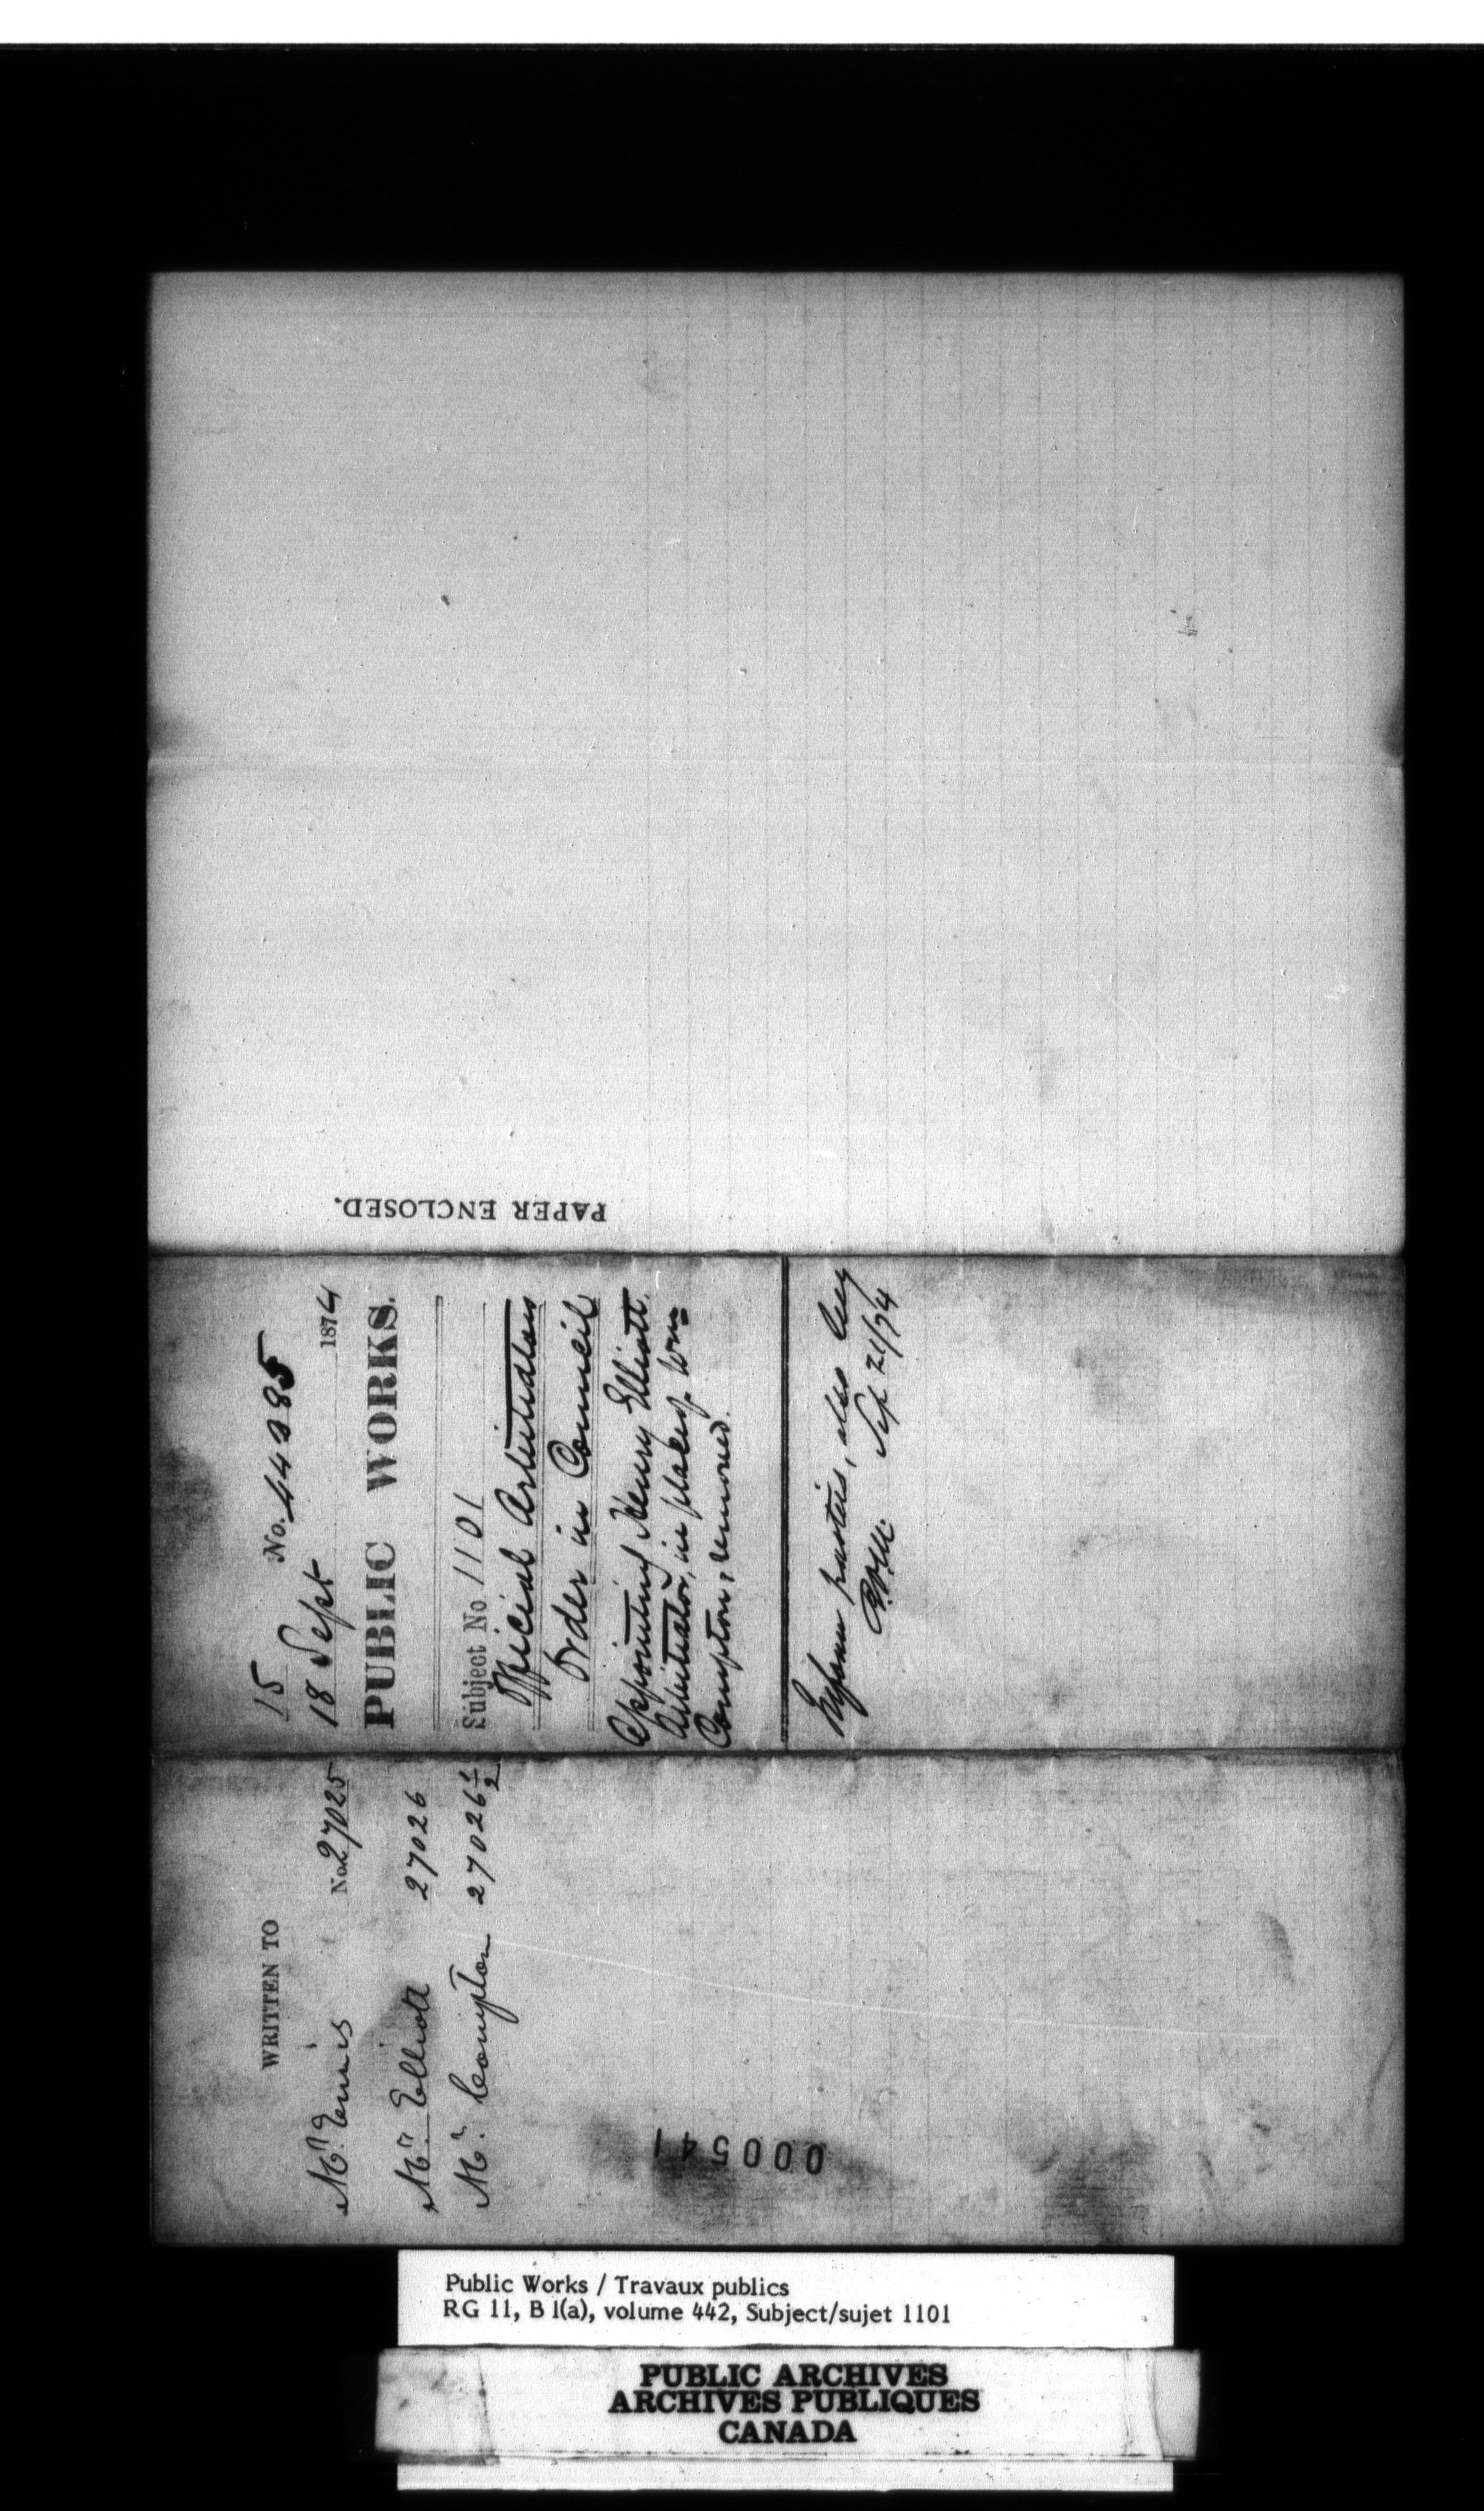 PAPER ENCLOSED.
15
No. 44285
18 Sept 1874
PUBLIC WORKS.
Subject No. 1101
Official Arbitrators
Order in Council
Appointing Henry Elliott
Arbitrator, in place of Wm
Compton, removed.
Inform parties, also
Sep 21/74
WRITTEN TO
Mr. Ennis No. 27025
Mr. Elliott 27026
Mr. Compton 27026 1/2
000541
Public Works / Travaux publics
RG 11, B 1(a), volume 442, Subject/sujet 1101
PUBLIC ARCHIVES
ARCHIVES PUBLIQUES
CANADA